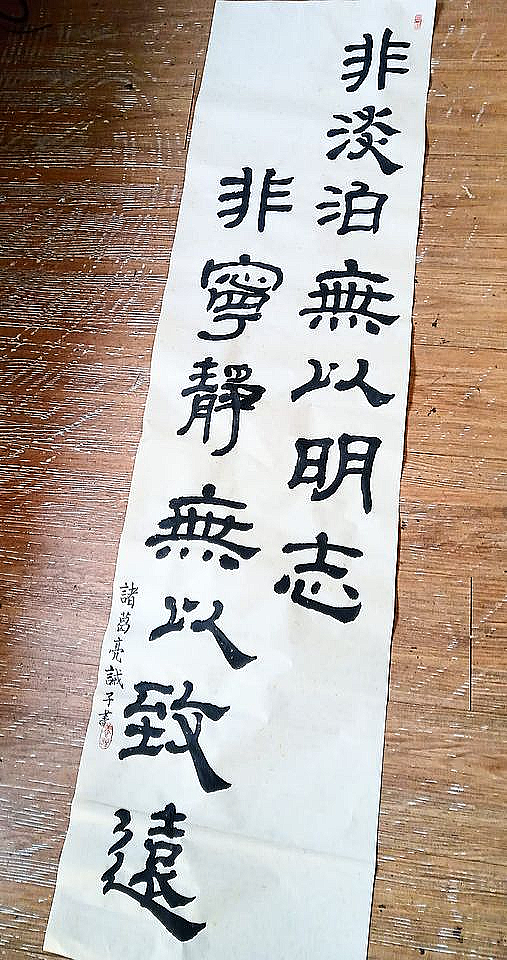 非淡泊無以明志
非寧靜無以致遠
諸葛亮誡子書